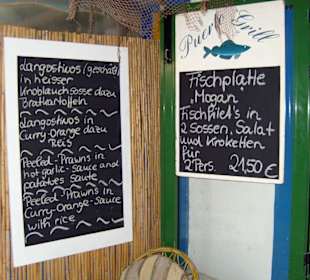 Langostinos (geschält)
in heisser
Knoblauchsosse dazu
Bratkartoffeln
Langostinos in
Curry-Orange dazu
Reis
Peeled-Prawns in
hot garlic-Sauce and
potatoes saute
Peeled-Prawns in
Curry-Orange-Sauce
with rice
Puerto Grill
Fischplatte
"Mogan"
Fischfilet's in
2 Sossen, Salat
und Kroketten
für
2 Pers. 21,50 €